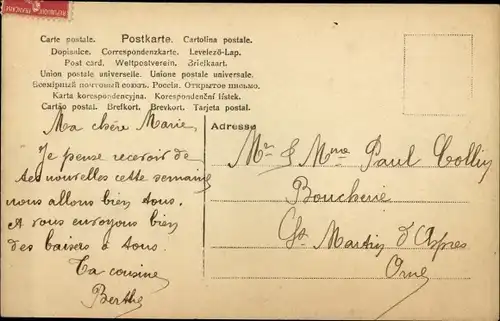 RÉPUBLIQUE FRANÇAISE
Carte postale. Postkarte. Cartolina postale.
Dopisnice. Correspondenzkarte. Levelező-Lap.
Post card. Weltpostverein. Briefkaart.
Union postale universelle. Unione postale universale.
Всемірный почтовый союзъ. Россія. Открытое письмо.
Karta korespondencyjna. Korespondenční lístek.
Cartão postal. Brefkort. Brevkort. Tarjeta postal.
Ma chère Marie,
Je pense recevoir de
tes nouvelles cette semaine
nous allons bien tous.
et vous envoyons bien
des baisers à tous.
Ta cousine
Berthe
Adresse
Mr & Mme Paul Collin
Boucherie
St Martin d'Aspres
Orne